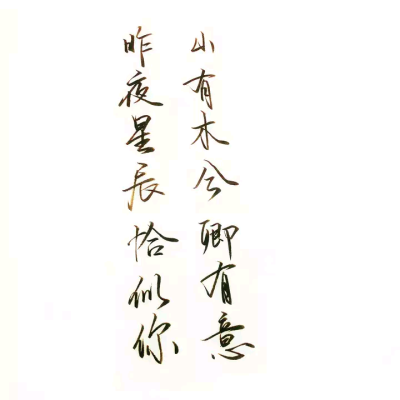 山有木兮卿有意
昨夜星辰恰似你